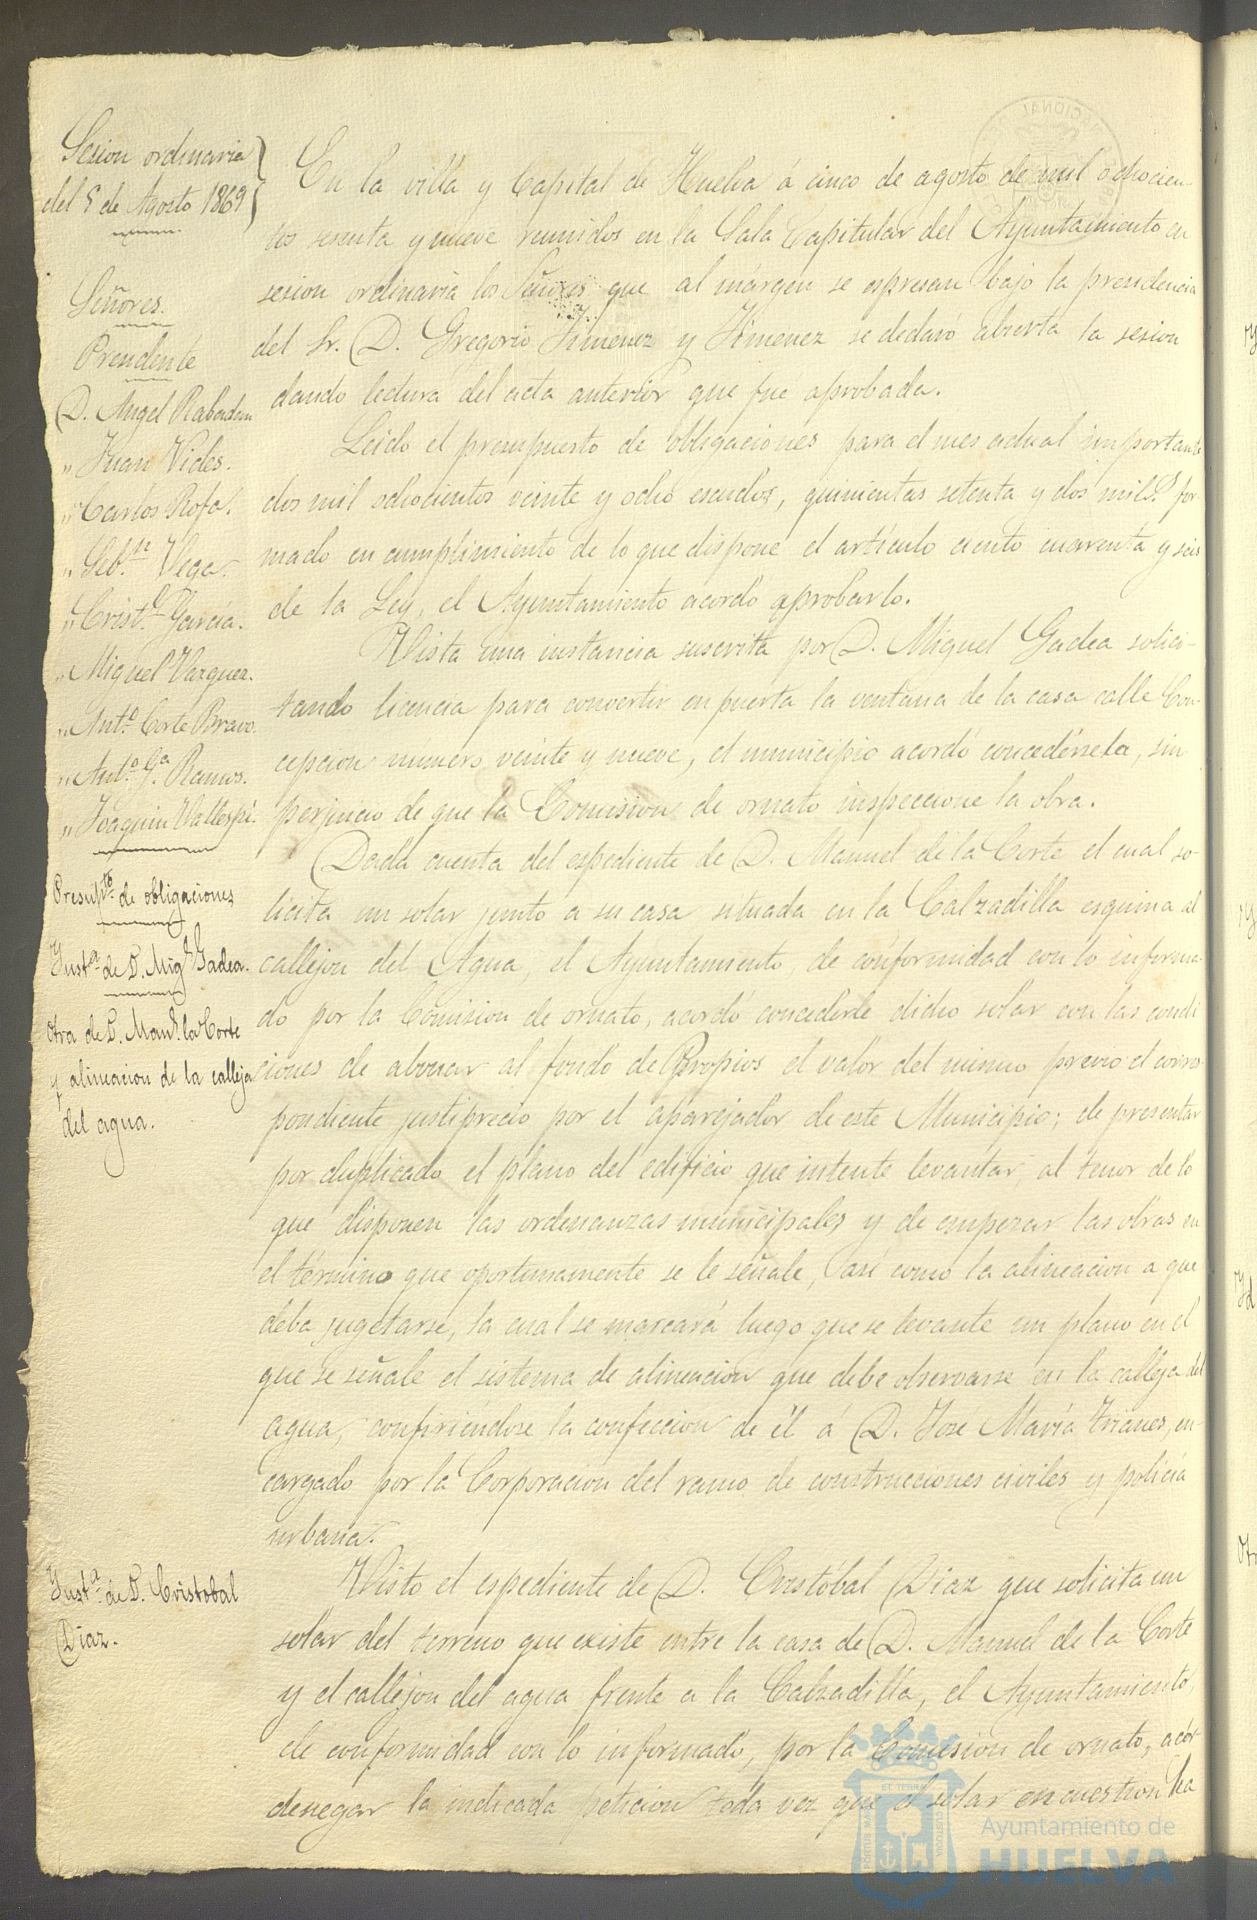 Sesion ordinaria
del 5 de Agosto 1869
Señores.
Presidente
D. Angel Rabadan
" Juan Vides.
" Carlos Rofa.
" Seb.n Vega.
" Crist.l Garcia.
" Miguel Vazquez.
" Ant.o Corte Bravo.
" Ant.o G.a Ramos.
" Joaquin Vallespi.
Presup.to de obligaciones
Inst.a de D. Mig.l Gadea.
Otra de D. Man.l la Corte
y alineacion de la calleja
del agua.
Inst.a de D. Cristobal
Diaz.
En la villa y Capital de Huelva á cinco de agosto de mil ochocien-
tos sesenta y nueve reunidos en la Sala Capitular del Ayuntamiento en
sesion ordinaria los Señores que al márgen se espresan bajo la presidencia
del Sr. D. Gregorio Jimenez y Jimenez se declaró abierta la sesion
dando lectura del acta anterior que fue aprobada.
Leido el presupuesto de obligaciones para el mes actual importante
dos mil ochocientos veinte y ocho escudos, quinientas setenta y dos mils. for-
mado en cumplimiento de lo que dispone el artículo ciento cuarenta y seis
de la Ley, el Ayuntamiento acordó aprobarlo.
Vista una instancia suscrita por D. Miguel Gadea solici-
tando licencia para convertir en puerta la ventana de la casa calle Con-
cepcion numero veinte y nueve, el municipio acordó concedérsela, sin
perjuicio de que la Comision de ornato inspeccione la obra.
Dada cuenta del espediente de D. Manuel de la Corte el cual so-
licita un solar junto a su casa situada en la Calzadilla esquina al
callejon del Agua, el Ayuntamiento de conformidad con lo informa-
do por la Comision de ornato, acordó concederle dicho solar con las condi-
ciones de abonar al fondo de Propios el valor del mismo previo el corres-
pondiente justiprecio por el aparejador de este Municipio; de presentar
por duplicado el plano del edificio que intente levantar, al tenor de lo
que disponen las ordenanzas municipales y de empezar las obras en
el término que oportunamente se le señale, así como la alineacion a que
deba sugetarse, la cual se marcará luego que se levante un plano en el
que se señale el sistema de alineacion que debe observarse en la calleja del
agua, confiriéndose la confeccion de él á D. Jose María Trianes, en-
cargado por la Corporacion del ramo de construcciones civiles y policia
urbana.
Visto el espediente de D. Cristóbal Diaz que solicita un
solar del terreno que existe entre la casa de D. Manuel de la Corte
y el callejon del agua frente a la Calzadilla, el Ayuntamiento,
de conformidad con lo informado, por la Comision de ornato, acor
denegar la indicada peticion toda vez que el solar en cuestion ha
Ayuntamiento de
HUELVA